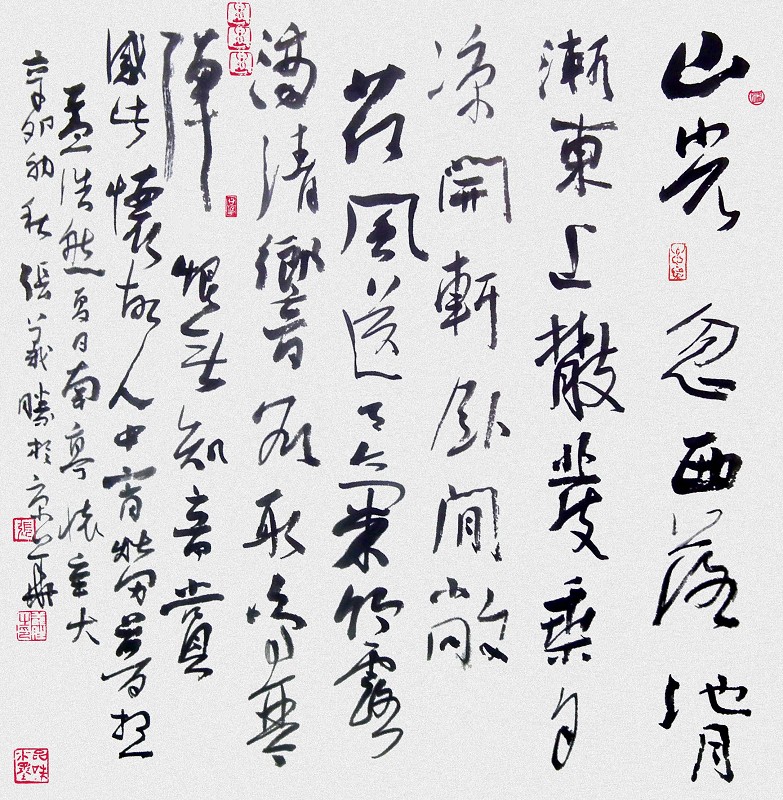 山光忽西落池月
漸東上散髮乘夕
涼開軒卧閒敞
荷風送香氣竹露
滴清響欲取鳴琴
彈恨無知音賞
感此懷故人中宵勞夢想
孟浩然夏日南亭懷辛大
辛卯初秋張義勝於京華
張
品味水墨